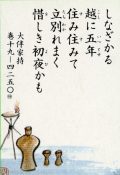 しなざかる
越に五年
住み住みて
立別れまく
惜しき初夜かも
大伴家持
巻十九―四二五〇